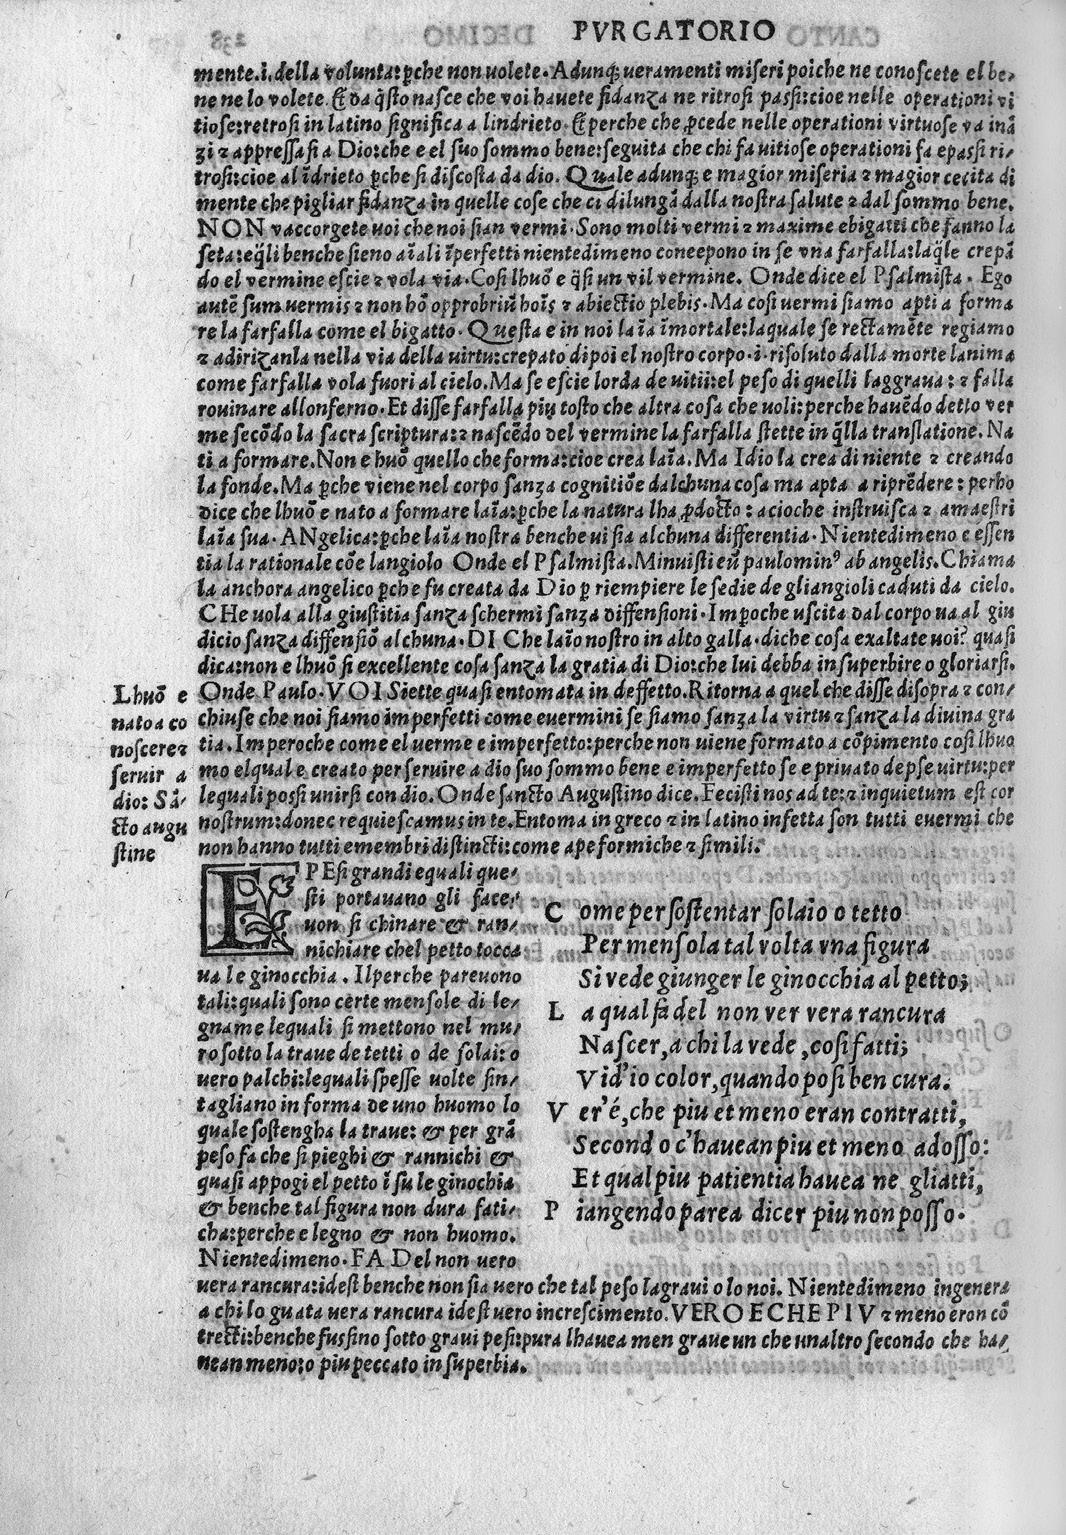 PVRGATORIO
mente.i.della volunta:ꝑche non uolete.Adunqꝫ ueramenti miseri poiche ne conoscete el be-
ne ne lo volete. E da q̃sto nasce che voi hauete fidanza ne ritrosi passi:cioe nelle operationi vi
tiose:retrosi in latino significa a lindrieto. E perche che ꝓcede nelle operationi virtuose va inã
zi ⁊ appressasi a Dio:che e el suo sommo bene:seguita che chi fa uitiose operationi fa epassi ri-
trosi:cioe al ĩdrieto ꝑche si discosta da dio. Quale adunqꝫ e magior miseria ⁊ magior cecita di
mente che pigliar fidanza in quelle cose che ci dilungã dalla nostra salute ⁊ dal sommo bene.
NON vaccorgete uoi che noi sian vermi. Sono molti vermi ⁊ maxime ebigatti che fanno la
seta:eq̃li benche sieno aĩali ĩperfetti nientedimeno conceepono in se vna farfalla:laq̃le crepã
do el vermine escie ⁊ vola via.Cosi lhuõ e q̃si un vil vermine. Onde dice el Psalmista. Ego
autẽ sum vermis ⁊ non hõ opprobriũ hoĩs ⁊ abiectio plebis.Ma cosi uermi siamo apti a forma
re la farfalla come el bigatto. Questa e in noi laĩa ĩmortale:laquale se rectamẽte regiamo
⁊ adirizanla nella via della uirtu:crepato dipoi el nostro corpo.i.risoluto dalla morte lanima
come farfalla vola fuori al cielo.Ma se escie lorda de uitii:el peso di quelli laggraua: ⁊ falla
rouinare allonferno.Et disse farfalla piu tosto che altra cosa che uoli:perche hauẽdo detto ver
me secõdo la sacra scriptura:⁊ nascẽdo del vermine la farfalla stette in q̃lla translatione.Na
ti a formare.Non e huõ quello che forma:cioe crea laĩa.Ma Idio la crea di niente ⁊ creando
la fonde.Ma ꝑche viene nel corpo sanza cognitiõe dalchuna cosa ma apta a riprẽdere: perho
dice che lhuõ e nato a formare laĩa:ꝑche la natura lha ꝓdocto: acioche instruisca ⁊ amaestri
laĩa sua. ANgelica:ꝑche laĩa nostra benche ui sia alchuna differentia.Nientedimeno e essen
tia la rationale cõe langiolo Onde el Psalmista.Minuisti eũ paulominꝰ ab angelis.Chiama
la anchora angelico ꝑche fu creata da Dio ꝑ riempiere le sedie de gliangioli caduti da cielo.
CHe uola alla giustitia sanza schermi sanza diffensioni.Impoche uscita dal corpo ua al giu
dicio sanza diffensiõ alchuna.DI Che laĩo nostro in alto galla.diche cosa exaltate uoi? quasi
dica:non e lhuõ si excellente cosa sanza la gratia di Dio:che lui debba insuperbire o gloriarsi.
Onde Paulo.VOI Siette quasi entomata in deffetto.Ritorna a quel che disse disopra ⁊ con-
chiuse che noi siamo imperfetti come euermini se siamo sanza la virtu ⁊ sanza la diuina gra
tia.Imperoche come el uerme e imperfetto:perche non uiene formato a cõpimento cosi lhuo
mo elqual e creato per seruire a dio suo sommo bene e imperfetto se e priuato depse uirtu:per
lequali possi unirsi con dio.Onde sancto Augustino dice.Fecisti nos ad te:⁊ inquietum est cor
nostrum:donec requiescamus in te.Entoma in greco ⁊ in latino infetta son tutti euermi che
non hanno tutti emembri distincti:come ape formiche ⁊ simili.
Lhuõ e
nato a co
noscere⁊
seruir a
dio: Sã-
cto augu
stine
EPEsi grandi equali que-
sti portauano gli face-
uon si chinare & ran-
nichiare chel petto tocca
ua le ginocchia. Ilperche pareuono
tali:quali sono certe mensole di le-
gname lequali si mettono nel mu-
ro sotto la traue de tetti o de solai: o
uero palchi:lequali spesse uolte sin-
tagliano in forma de uno huomo lo
quale sostengha la traue: & per grã
peso fa che si pieghi & rannichi &
quasi appogi el petto ĩ su le ginochia
& benche tal figura non dura fati-
cha:perche e legno & non huomo.
Nientedimeno.FA Del non uero
uera rancura:idest benche non sia uero che tal peso lagraui o lo noi. Nientedimeno ingenera
a chi lo guata uera rancura idest uero increscimento.VERO E CHE PIV ⁊ meno eron cõ
trecti:benche fussino sotto graui pesi:pura lhauea men graue un che unaltro secondo che ha-
uean meno:o piu peccato in superbia.
C ome per sostentar solaio o tetto
Per mensola tal volta vna figura
Si vede giunger le ginocchia al petto;
L a qual fa del non ver vera rancura
Nascer,a chi la vede ,cosi fatti;
Vid'io color,quando posi ben cura.
V er'é,che piu et meno eran contratti,
Secondo c'hauean piu et meno adosso:
Et qual piu patientia hauea ne gliatti,
P iangendo parea dicer piu non posso.